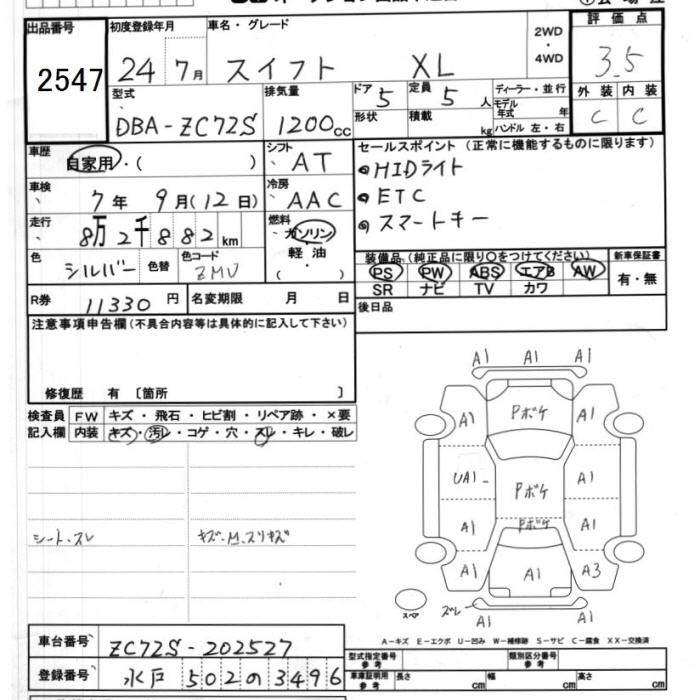 出品番号 2547
初度登録年月 24年 7月
車名・グレード スイフト XL
2WD・4WD
評価点 3.5
外装 C 内装 C
型式 DBA-ZC72S
排気量 1200cc
ドア 5
形状
定員 5人
積載 kg
ディーラー・並行
モデル年式 年
ハンドル 左・右
車歴 自家用・( )
シフト AT
セールスポイント (正常に機能するものに限ります)
・HIDライト
・ETC
・スマートキー
車検 7年 9月(12日)
冷房 AAC
走行 8万2千882km
燃料 ガソリン・軽油・( )
色 シルバー 色替 色コード ZMU
装備品 (純正品に限り○をつけてください)
PS PW ABS エアB AW
SR ナビ TV カワ
新車保証書 有・無
R券 11330円 名変期限 月 日
後日品
注意事項申告欄(不具合内容等は具体的に記入して下さい)
修復歴 有〔箇所 〕
検査員記入欄
FW キズ・飛石・ヒビ割・リペア跡・×要
内装 キズ・汚レ・コゲ・穴・スレ・キレ・破レ
シート・スレ
キズ・M.スリキズ
A1 A1 A1
A1 Pボケ A1
UA1 Pボケ A1
A1 Pボケ A1
A1 A1 A3
スペア スレ A1 A1 A1
A-キズ E-エクボ U-凹み W-補修跡 S-サビ C-腐食 XX-交換済
車台番号 ZC72S-202527
登録番号 水戸 502の3496
型式指定番号 参考
類別区分番号 参考
車庫証明用 参考 長さ cm 幅 cm 高さ cm